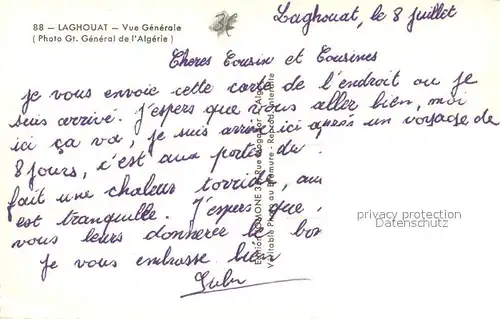 88 — LAGHOUAT — Vue Générale
( Photo Gt. Général de l'Algérie )
3€
Laghouat, le 8 juillet
Cheres Cousin et Cousines
je vous envoie cette carte de l'endroit ou je
suis arrivé. J'espers que vous aller bien, moi
ici ça va, je suis arrivé ici après un voyage de
8 jours, c'est aux portes du
fait une chaleur torride, au
est tranquille. J'espers que
vous leurs donnerée le bo
je vous embrasse bien
Véritable Photo au Bromure - Reproduction interdite
privacy protection
Datenschutz